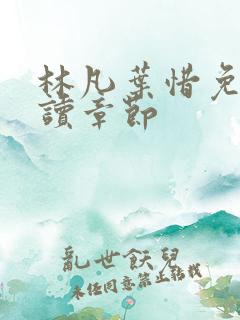 林凡葉惜免
讀章節
亂世飫兒
未經同意禁止轉載